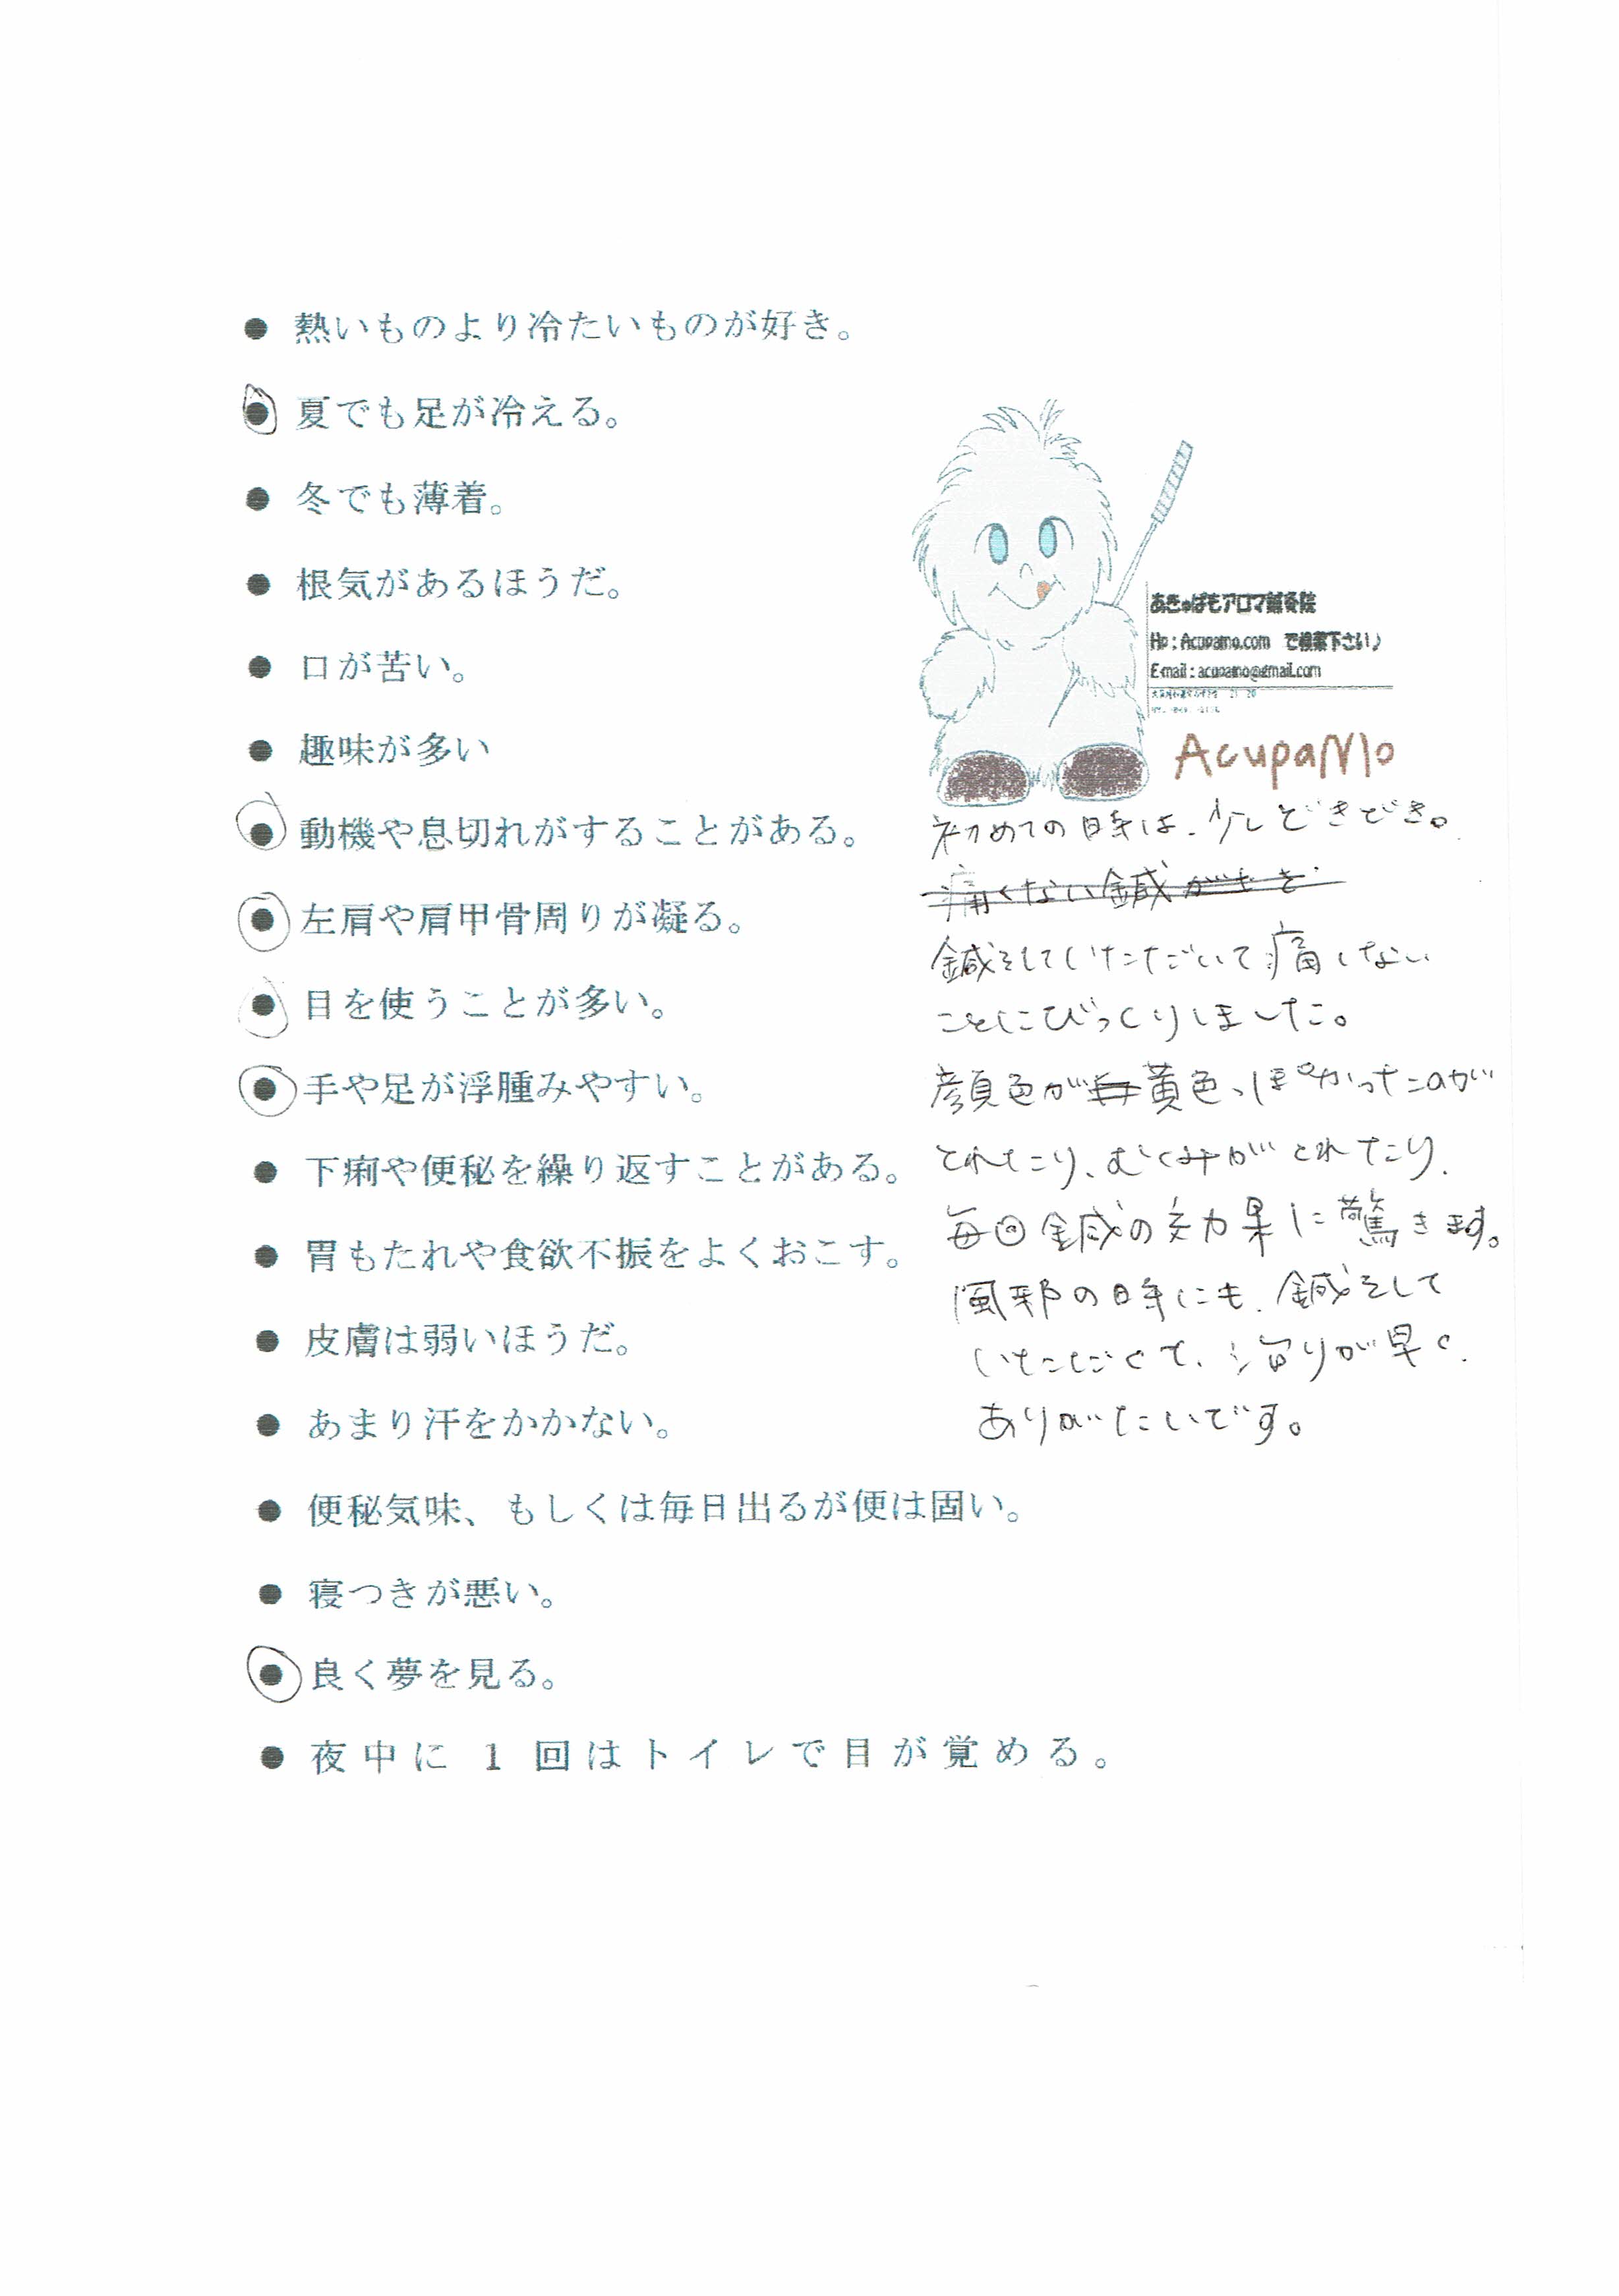 ● 熱いものより冷たいものが好き。
● 夏でも足が冷える。
● 冬でも薄着。
● 根気があるほうだ。
● 口が苦い。
● 趣味が多い
● 動機や息切れがすることがある。
● 左肩や肩甲骨周りが凝る。
● 目を使うことが多い。
● 手や足が浮腫みやすい。
● 下痢や便秘を繰り返すことがある。
● 胃もたれや食欲不振をよくおこす。
● 皮膚は弱いほうだ。
● あまり汗をかかない。
● 便秘気味、もしくは毎日出るが便は固い。
● 寝つきが悪い。
● 良く夢を見る。
● 夜中に 1 回はトイレで目が覚める。
あきゅぱもアロマ鍼灸院
Hp : Acupamo.com で検索下さい♪
E-mail : acupamo@gmail.com
AcupaMo
初めての時は、少しどきどき。
痛くない鍼
鍼をしていただいて痛くない
ことにびっくりしました。
顔色が黄色っぽかったのが
とれたり、むくみがとれたり、
毎回鍼の効果に驚きます。
風邪の時にも、鍼をして
いただくて、治りが早く、
ありがたいです。